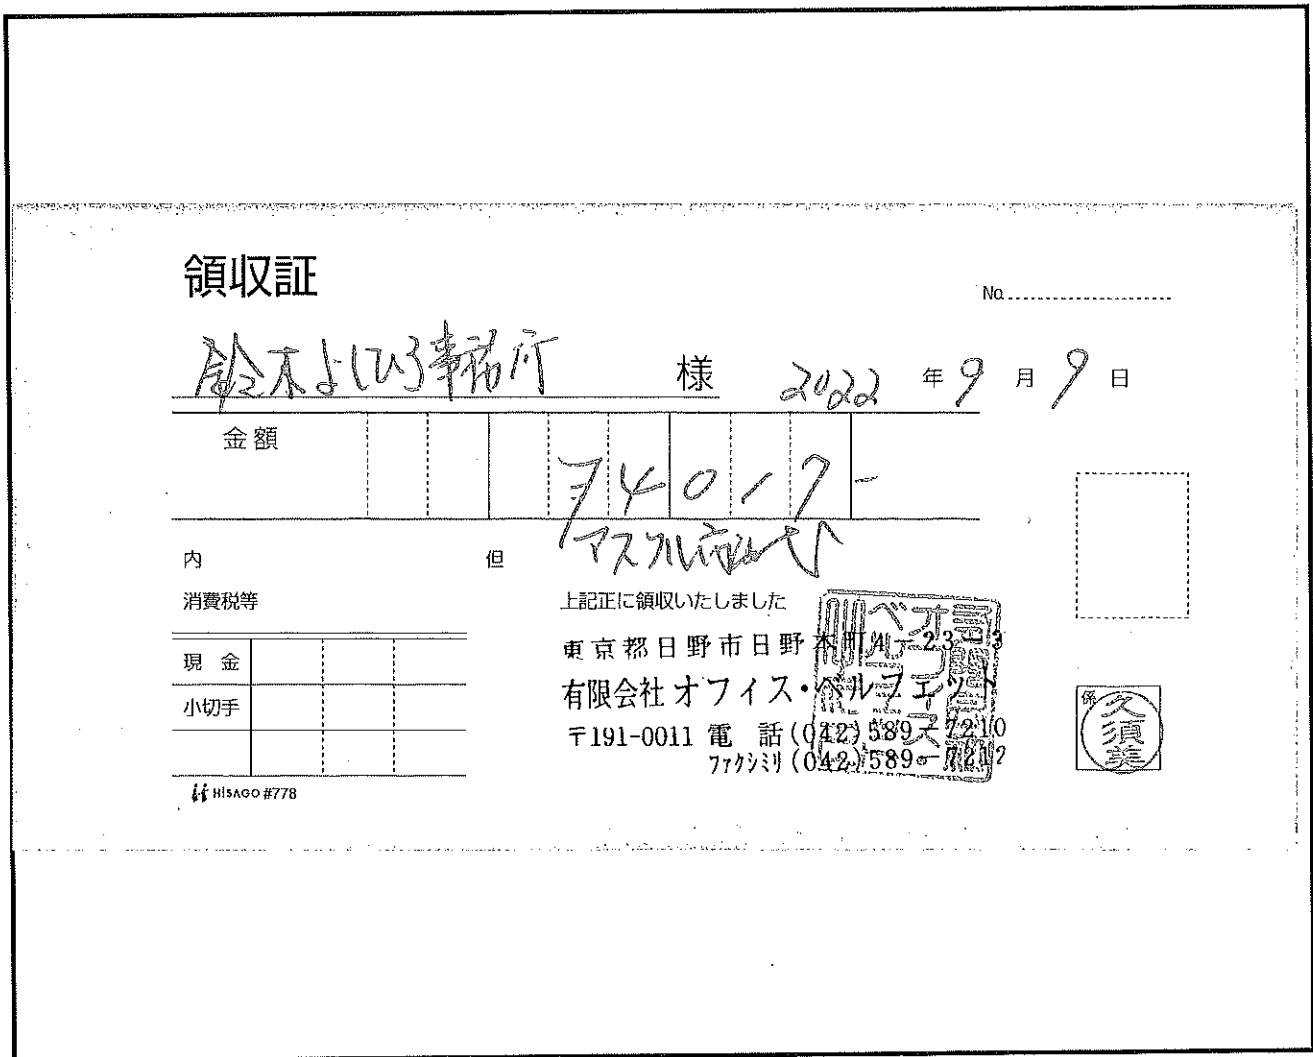 領収証
No.
鈴木よしひろ事務所 様 2022 年 9 月 9 日
金額
内
但
消費税等
上記正に領収いたしました
東京都日野市日野本町4-23-3
現金
有限会社 オフィス・ベルフェット
小切手
〒191-0011 電 話 (042) 589-7210
ファクシミリ (042) 589-7212
係
久須美
HISAGO #778